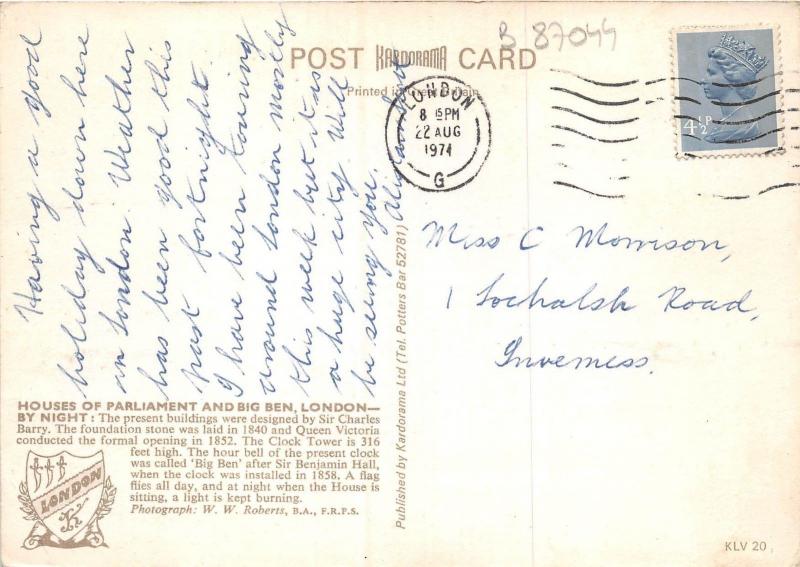 B 87044
POST KARDORAMA CARD
Printed in Great Britain
LONDON
8 15PM
22 AUG
1974
G
4½P
Having a good
holiday down here
in London. Weather
has been good this
past fortnight.
I have been touring
around London mostly
this week but it is
a huge city. Will
be seeing you.
Miss C Morrison,
1 Lochalsh Road,
Inverness.
Published by Kardorama Ltd (Tel. Potters Bar 52781)
HOUSES OF PARLIAMENT AND BIG BEN, LONDON—
BY NIGHT: The present buildings were designed by Sir Charles
Barry. The foundation stone was laid in 1840 and Queen Victoria
conducted the formal opening in 1852. The Clock Tower is 316
feet high. The hour bell of the present clock
was called 'Big Ben' after Sir Benjamin Hall,
when the clock was installed in 1858. A flag
flies all day, and at night when the House is
sitting, a light is kept burning.
Photograph: W. W. Roberts, B.A., F.R.P.S.
LONDON
K
KLV 20